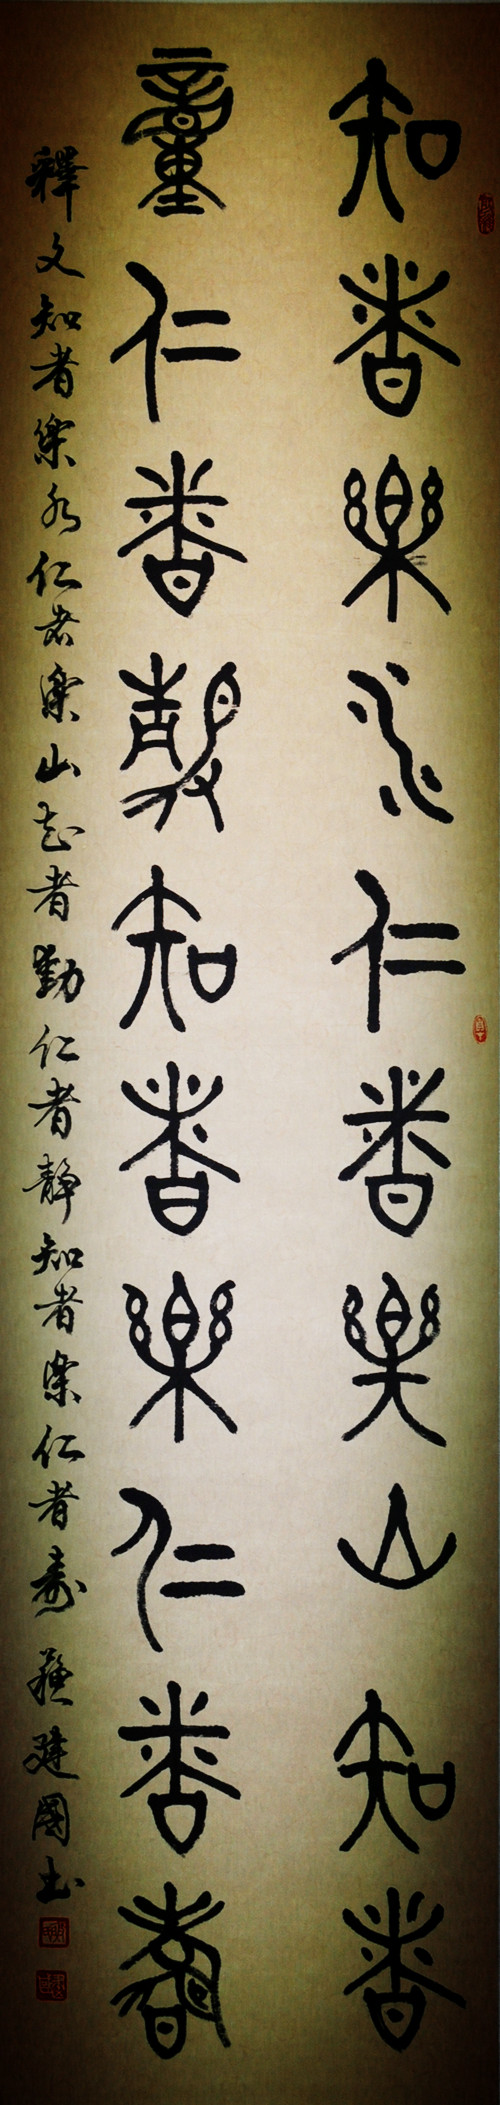 知者樂水仁者樂山知者
動仁者靜知者樂仁者壽
釋文知者樂水仁者樂山知者動仁者靜知者樂仁者壽 蘇建國书